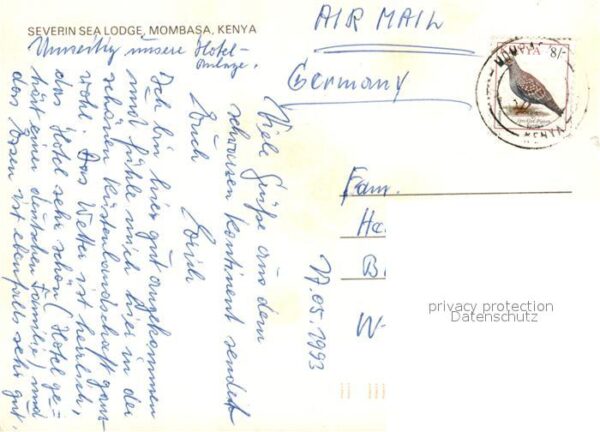 SEVERIN SEA LODGE, MOMBASA, KENYA
Umseitig unsere Hotel-
anlage.
Viele Grüße aus dem
schwarzen Kontinent sendet
Euch Erich
Ich bin hier gut angekommen
und fühle mich hier in der
schönen Küstenlandschaft ganz
wohl. Das Wetter ist herrlich,
das Hotel sehr schön (Hotel ge-
hört einer deutschen Familie) und
das Essen ist ebenfalls sehr gut.
17.05.1993
AIR MAIL
Germany
KENYA 8/-
KENYA
Fam.
Ha
B
W-
privacy protection
Datenschutz